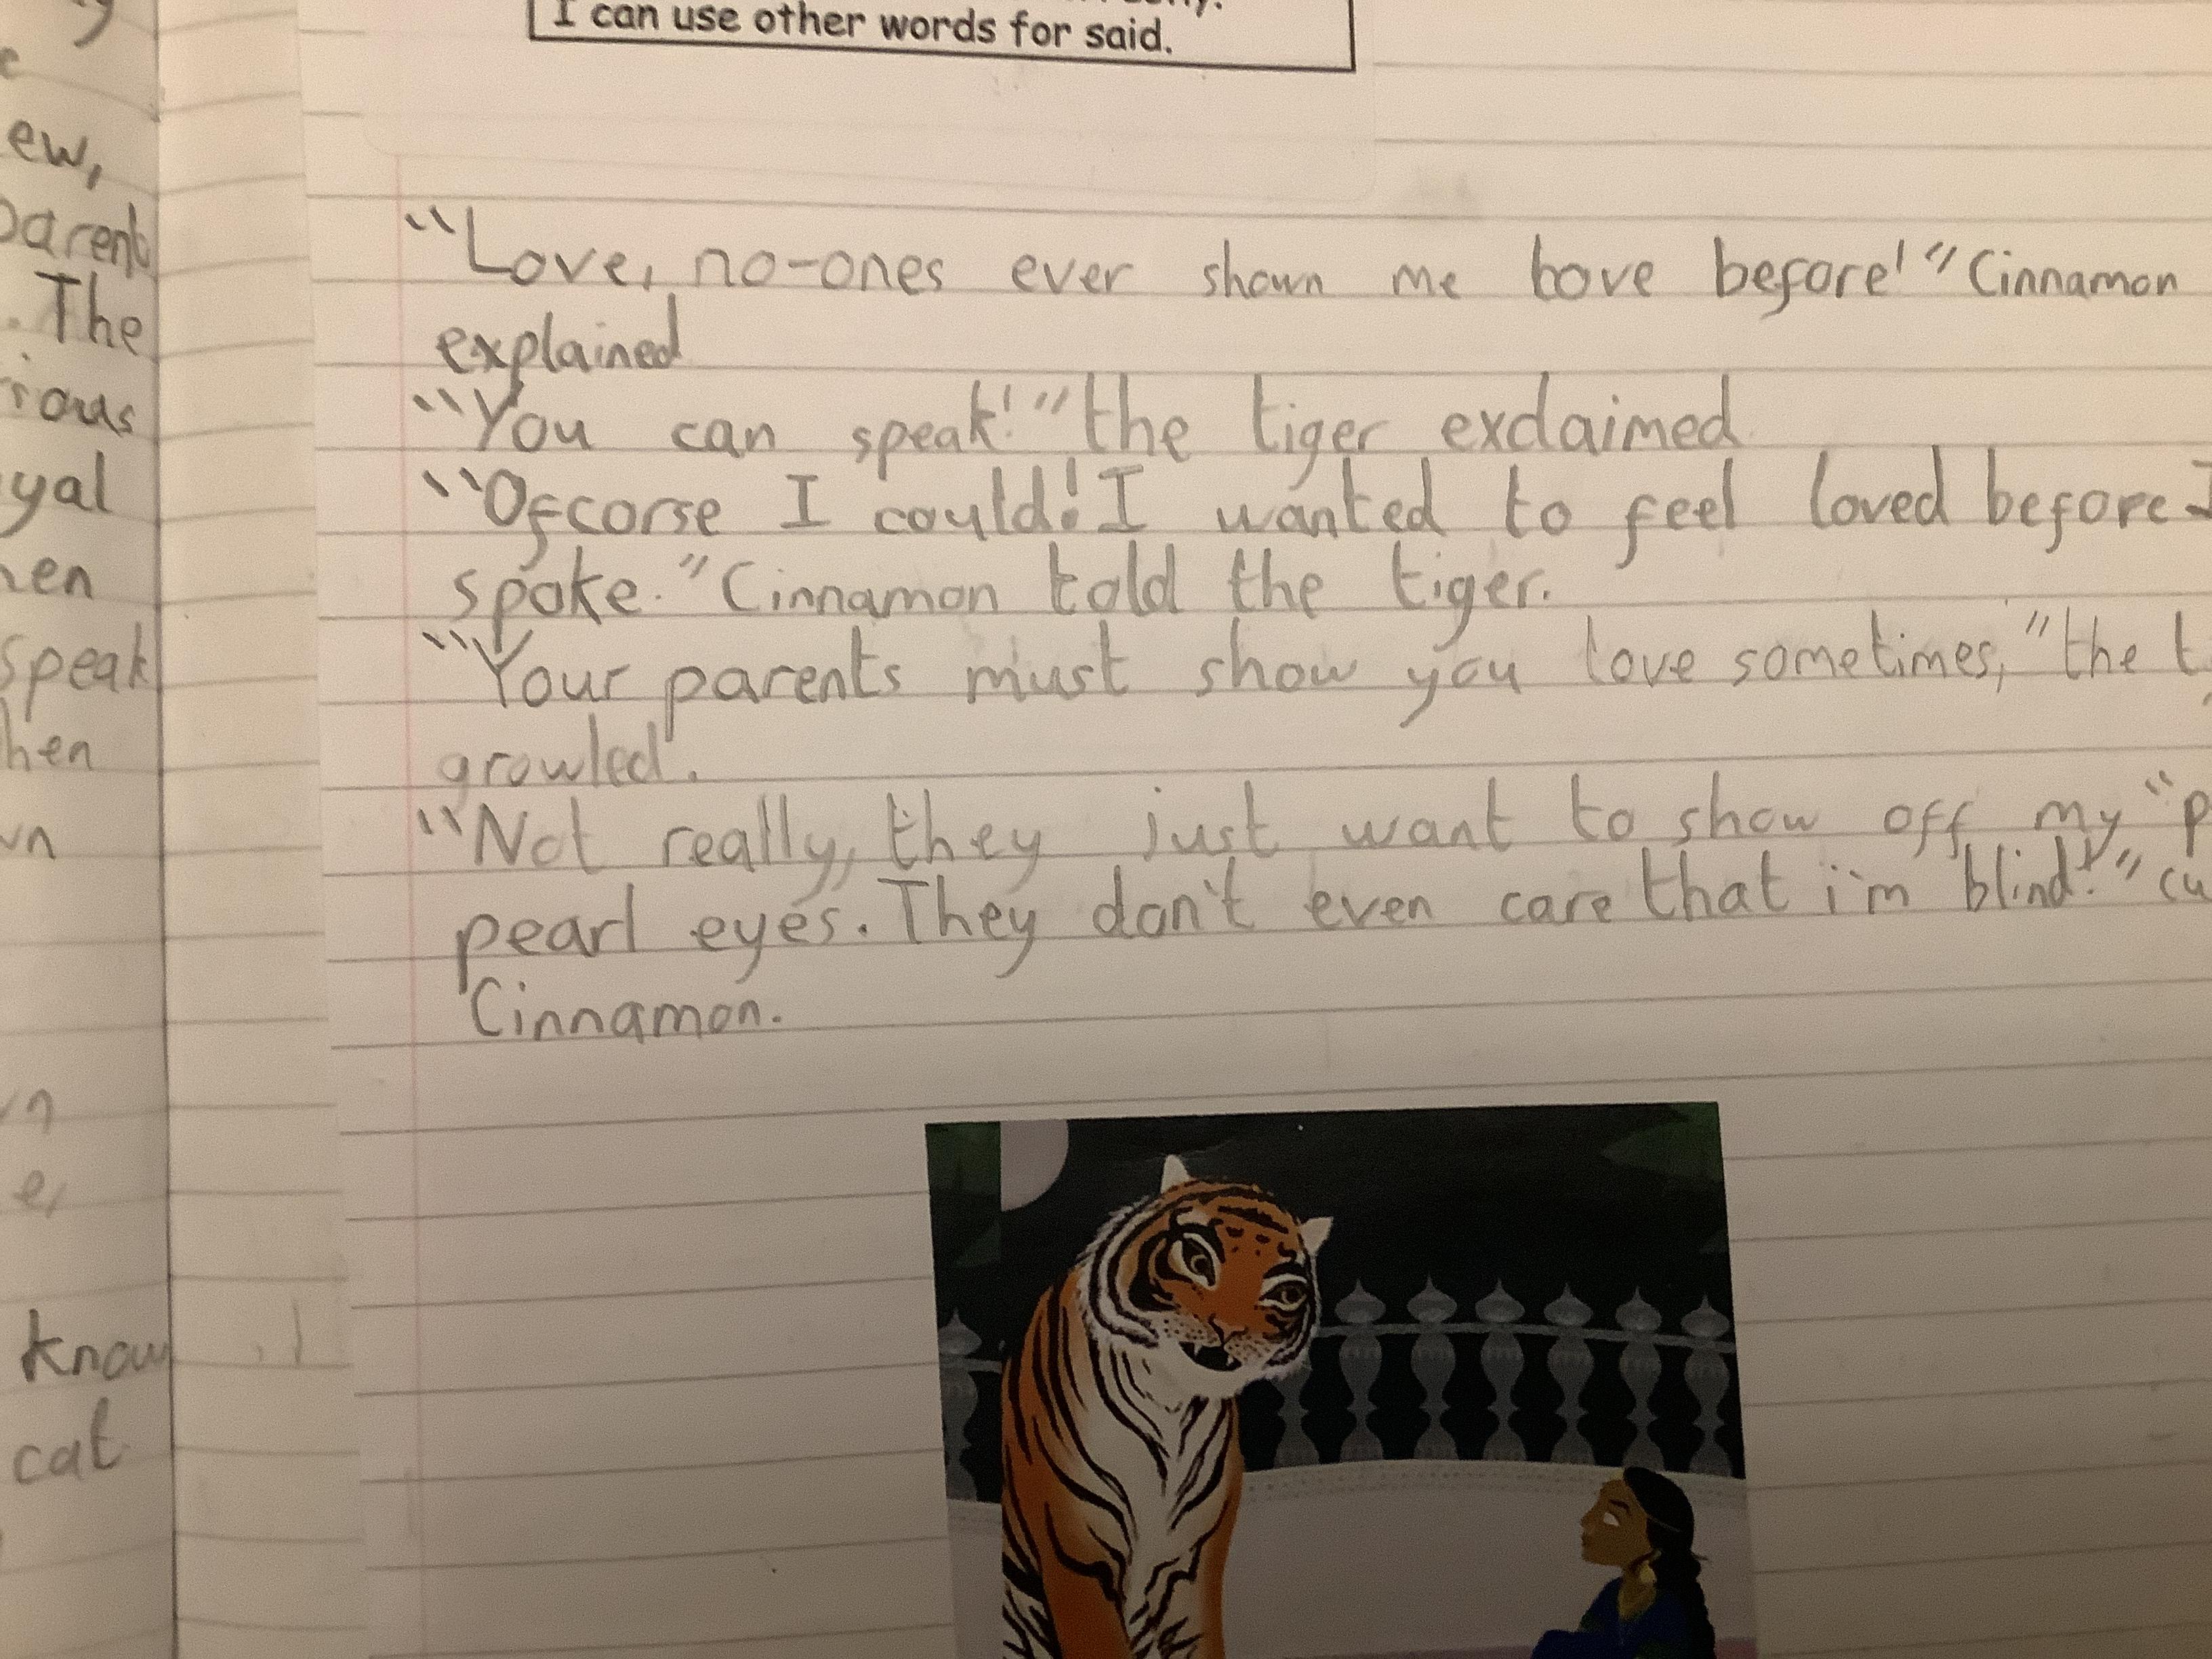 I can use other words for said.
ew,
parent
The
yal
hen
speak
hen
wn
know
cat
"Love, no-ones ever shown me love before!" Cinnamon
explained
"You can speak!" the tiger exclaimed
"Ofcorse I could! I wanted to feel loved before I
spoke." Cinnamon told the tiger.
"Your parents must show you love sometimes," the t
growled.
"Not really, they just want to show off my "p
pearl eyes. They don't even care that i'm blind!" cu
Cinnamon.